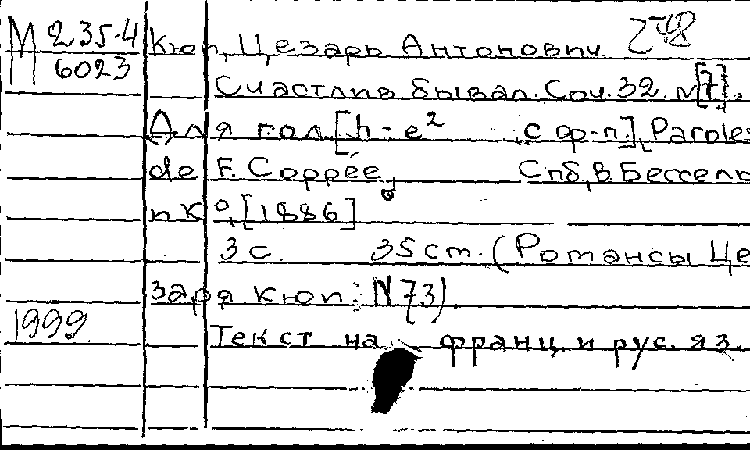 М 235-4
6023
248
Кюи, Цезарь Антонович
Счастлив бывал. Соч. 32. №[7].
Для гол. [h-e² с ф-п.], Paroles
de F. Coppée, Спб, В. Бессель
и К°, [1886]
3 с. 35 cm. (Романсы Це
заря Кюи: N 73).
1999
Текст на франц. и рус. яз.